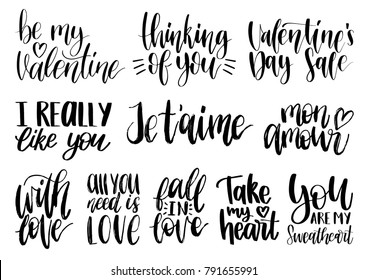 be my
Valentine
thinking
of you
Valentine's
Day Sale
I REALLY
like you
Je t'aime
mon
amour
with
love
all you
need is
LOVE
fall
IN
love
Take
my
heart
You
ARE MY
Sweetheart
shutterstock.com · 791655991